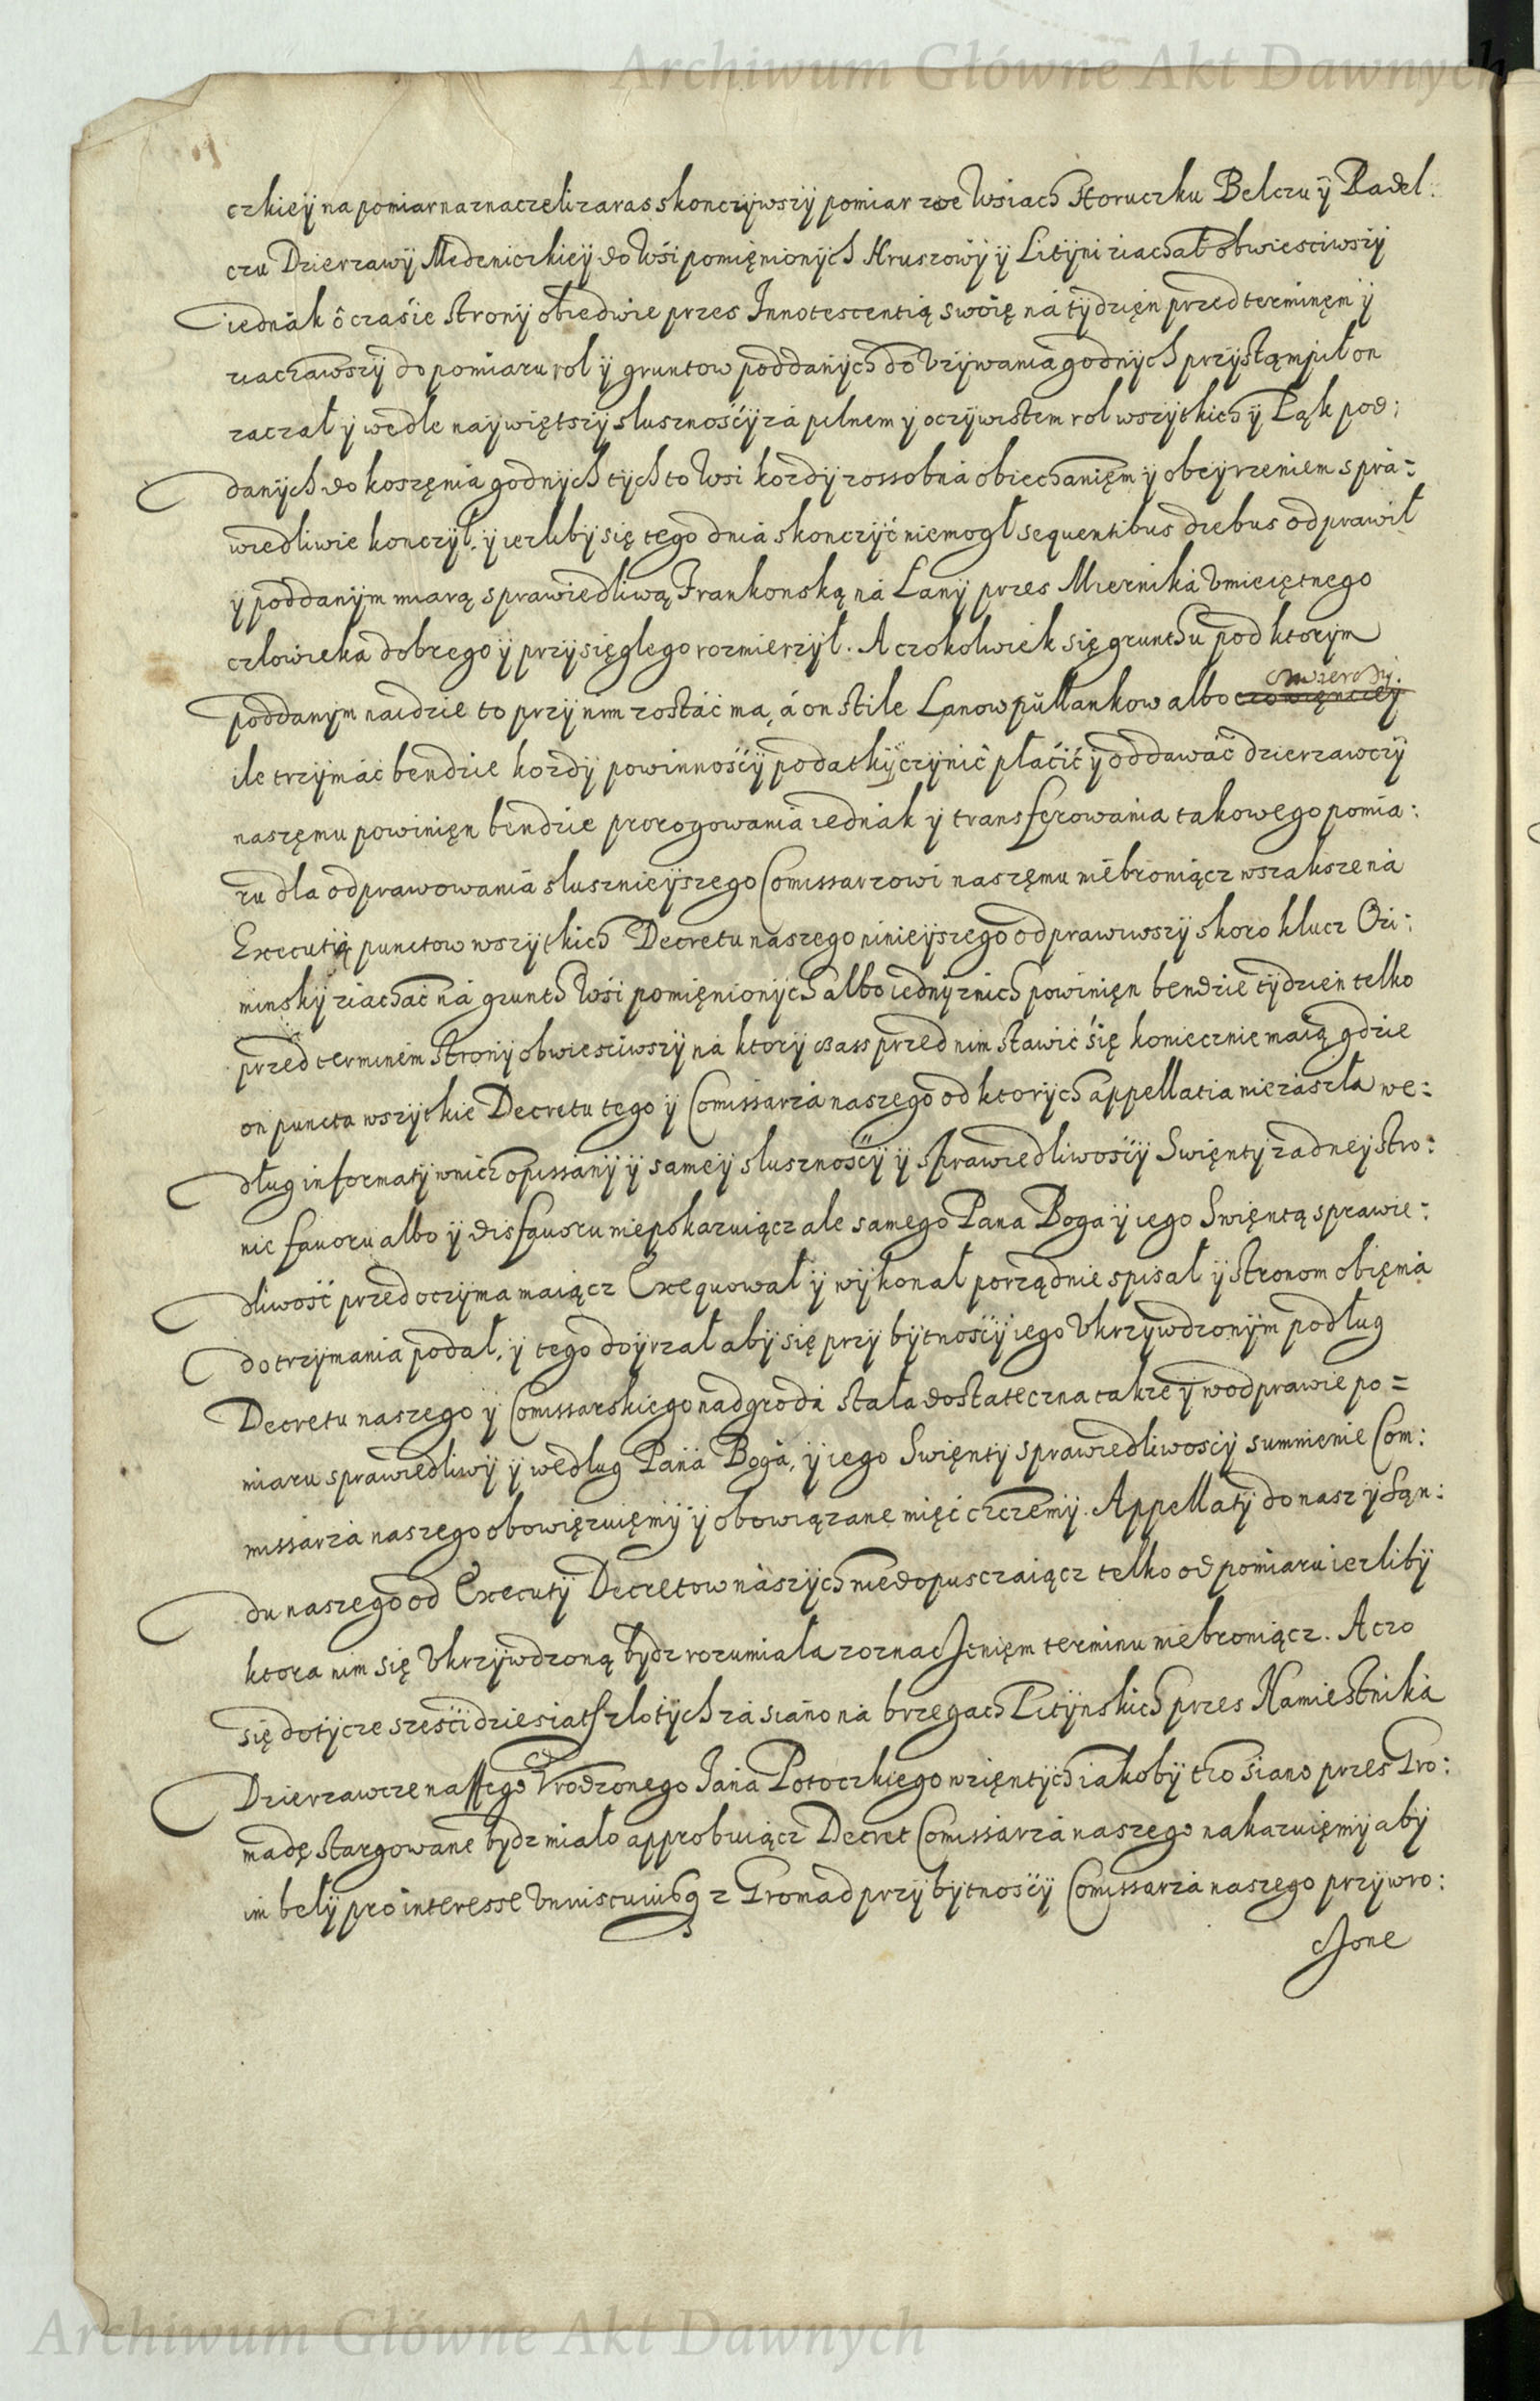 Archiwum Główne Akt Dawnych
czkiey na pomiar naznaczeli zaras skonczywszy pomiar we Wsiach Horuczku Belczu y Radel:
czu Dzierzawy Medeniczkiey do Wsi pomięnionych Hruszowy y Lityni ziachał obwiesciwszy
iednák ô czaśie strony obiedwie przes Innotescentią swoię ná tydzięn przed terminęm y
ziachawszy do pomiaru rol y gruntow poddanych do Vzywania godnych przystąmpił on
zaczał y wedle naywiętszy slusznośćy zá pilnem y oczywistem rol wszytkich y Łąk pod:
danych do koszęnia godnych tych to Wsi kozdy zossobná obiechanięm y obeyrzeniem sprá=
wiedliwie konczył, y iezliby się tego dniá skonczyć niemogł sequentibus diebus odprawił
y poddanym miarą sprawiedliwą Frankonską ná Lany przes Mierniká Vmieiętnego
człowieká dobrego y przysięglego rozmierzył. A czokolwiek się grunthu pod ktorym
poddanym naidzie to przy nim zostáć ma, á on stile Lanow pułlankow albo czwierci
ile trzymáć bendzie kozdy powinnośćy podatky czynić płáćić y oddawáć dzierzawczy
naszęmu powinięn bendzie prorogowania iednák y transferowania takowego pomia:
ru dla odprawowaniá slusznieyszego Comissarzowi naszęmu niebroniącz wszaksze ná
Executią punctow wszytkich Decretu naszego ninieyszego odprawiwszy skoro klucz Ozi:
minsky ziacháć ná grunth Wsi pomięnionych albo iedny znich powinięn bendzie tydzień telko
przed terminem strony obwiesciwszy ná ktory czass przed nim stawić śię koniecznie maią gdzie
on puncta wszytkie Decretu tego y Comissarzá naszego od ktorych appellatia niezászła we=
dług informaty wnich opissany y samey slusznośćy y sprawiedliwośćy Swięnty zadney stro:
nie fauoru albo y disfauoru niepokazuiącz ale samego Pana Boga y iego Swięntą sprawie:
dliwość przed oczyma maiącz Exequował y wykonał porządnie spisał y stronom obięmá
do trzymania podał, y tego doyrzał aby się przy bytnośćy iego Vkrzywdzonym podług
Decretu naszego y Comissarskiego nadgrodá stała dostateczna takze y w odprawie po=
miaru sprawiedliwy y według Paná Bogá, y iego Swięnty sprawiedliwośćy sumnienie Com:
missarzá naszego obowięzuięmy y obowiązane mięć chczemy. Appellaty do nasz y Sąn:
du naszego od Executy Decretow nászych niedopusczaiącz telko od pomiaru iezliby
ktora nim się Vkrzywdzoną bydz rozumiała z oznaczenięm terminu niebroniącz. A czo
się dotycze sześćidziesiąt złotych zá siáno ná brzegach Litynskich przes Namiestniká
Dzierzawcze naszego Vrodzonego Janá Potoczkiego wzięntych iakoby tho śiano przes Gro:
madę stargowane bydz miáło approbuiącz Decret Comissarzá naszego nakazuięmy aby
im bely pro interesse vniuscuiusq z Gromad przy bytnośćy Comissarzá naszego przywro:
czone
Archiwum Główne Akt Dawnych